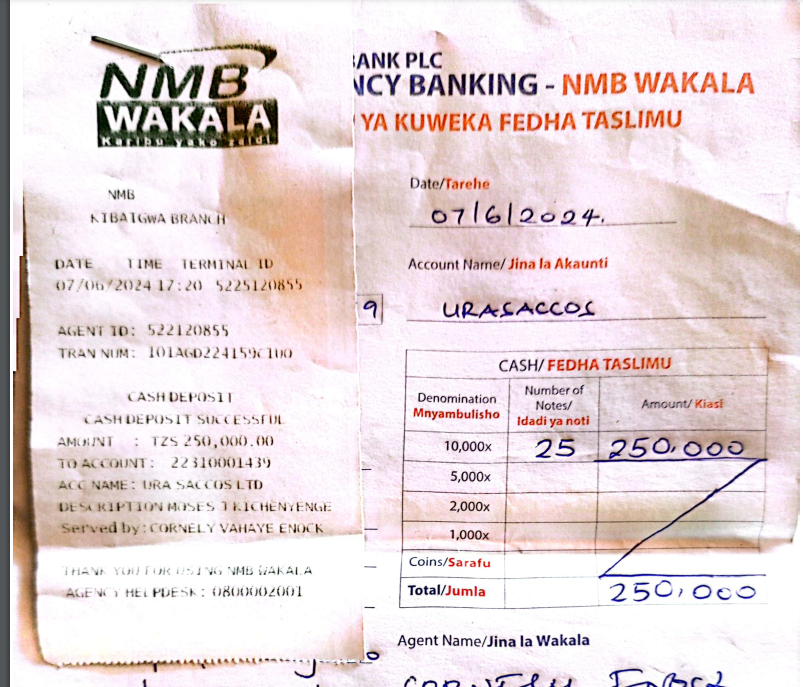 NMB
WAKALA
Karibu yako zaidi
NMB
KIBAIGWA BRANCH
DATE TIME TERMINAL ID
07/06/2024 17:20 5225120855
AGENT ID: 522120855
TRAN NUM: 101AGD224159C1U0
CASH DEPOSIT
CASH DEPOSIT SUCCESSFUL
AMOUNT : TZS 250,000.00
TO ACCOUNT: 22310001439
ACC NAME: URA SACCOS LTD
DESCRIPTION MOSES J KICHENYENGE
Served by: CORNELY VAHAYE ENOCK
THANK YOU FOR USING NMB WAKALA
AGENCY HELPDESK: 0800002001
BANK PLC
NCY BANKING - NMB WAKALA
YA KUWEKA FEDHA TASLIMU
Date/Tarehe
07/6/2024.
Account Name/ Jina la Akaunti
9 URASACCOS
CASH/ FEDHA TASLIMU
Denomination Mnyambulisho Number of Notes/ Idadi ya noti Amount/ Kiasi
10,000x 25 250,000
5,000x
2,000x
1,000x
Coins/Sarafu
Total/Jumla 250,000
Agent Name/Jina la Wakala